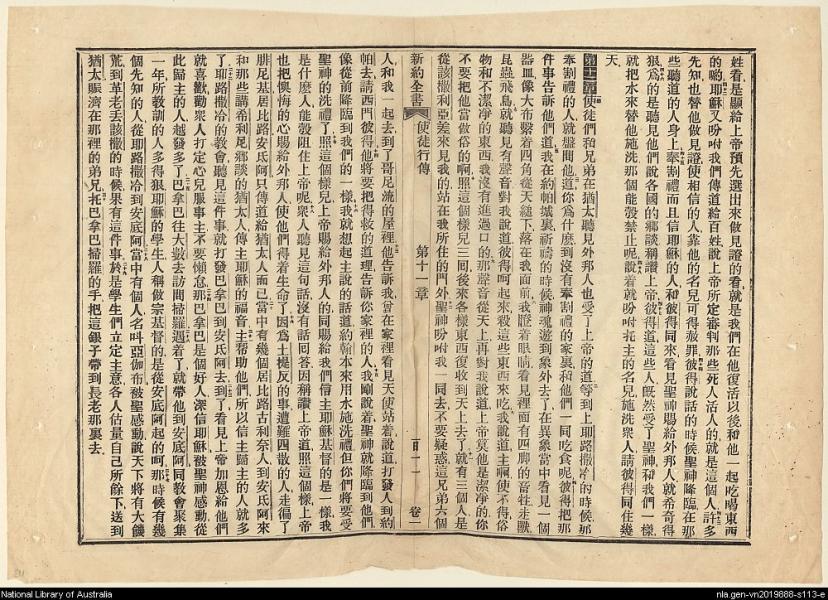 姓看是顯給上帝預先選出來做見證的看就是我們在他復活以後和他一起吃喝東西
的喲耶穌又吩咐我們傳道給百姓說上帝所定審判那些死人活人的就是這個人許多
先知也替他做見證使相信的人靠他的名兒可得赦罪彼得說話的時候聖神降臨在那
些聽道的人身上奉割禮而且信耶穌的人和彼得同來看見聖神賜給外邦人就希奇得
狠為的是聽見他們說各國的鄉談稱讚上帝彼得道這些人既然受了聖神和我們一樣
就把水來替他施洗那個能彀禁止呢說着就吩咐托主的名兒施洗眾人請彼得同住幾
天
第十一章使徒們和兄弟在猶太聽見外邦人也受了上帝的道等到上耶路撒冷的時候那
奉割禮的人就盤問他道你為什麼到沒有奉割禮的家裏和他們一同吃食呢彼得把那
件事告訴他們道我在約帕城裏祈禱的時候神魂遊到象外去了在異象當中看見一個
器皿像大布繫着四角從天縋下落在我面前我睜着眼睛看見裡面有四脚的畜牲走獸
昆蟲飛鳥就聽見有聲音對我說道彼得呵起來殺這些東西來吃我說道主啊使不得俗
物和不潔淨的東西我沒有進過口的那聲音從天上再對我說道上帝莫他是潔淨的你
不要把他當做俗的啊照這個樣兒三囘後來各樣東西復收到天上去了就有三個人是
從該撒利亞差來見我的站在我所住的門外聖神吩咐我一同去不要疑惑這兄弟六個
新約全書
使徒行傳
第十一章
卷一
人和我一起去到了哥尼流的屋裡他告訴我曾在家裡看見天使站着說道打發人到約
帕去請西門彼得他將要把得救的道理告訴你家裡的人我剛說着聖神就降臨到他們
像從前降臨到我們的一樣我就想起主說的話道約翰本來用水施洗禮但你們將要受
聖神的洗禮了照這個樣兒上帝賜給外邦人的同賜給我們信主耶穌基督的是一樣我
是什麼人能彀阻住上帝呢眾人聽見這句話沒有話囘答因稱讚上帝道照這個樣上帝
也把悔的心賜給外邦人使他們得着生命了因為士提反的事遭難四散的人走徧了
腓尼基居比路安氐阿只傳道給猶太人而已當中有幾個居比路古利奈人到安氐阿來
和那些講希利尼鄉談的猶太人傳主耶穌的福音主帮助他們所以信主歸主的人就多
了耶路撒冷的教會聽見這件事就打發巴拿巴到安氐阿去到了看見上帝加恩給他們
就喜歡勸眾人打定心兒服事主不要懶怠那巴拿巴是個好人深信耶穌被聖神感動從
此歸主的人越發多了巴拿巴往大數去訪問掃羅遇着了就帶他到安底阿同教會聚集
一年所教訓的人多得狠耶穌的學生人稱做宗基督的是從安底阿起的呵那時候有幾
個先知的人從耶路撒冷到安底阿當中有個人名叫亞伽布被聖感動說天下將有大饑
荒到革老丟該撒的時候果有這件事於是學生們立定主意各人估量自己所餘下送到
猶太賑濟在那裡的弟兄托巴拿巴掃羅的手把這銀子帶到長老那裏去
National Library of Australia
nla.gen-vn2019888-s113-e